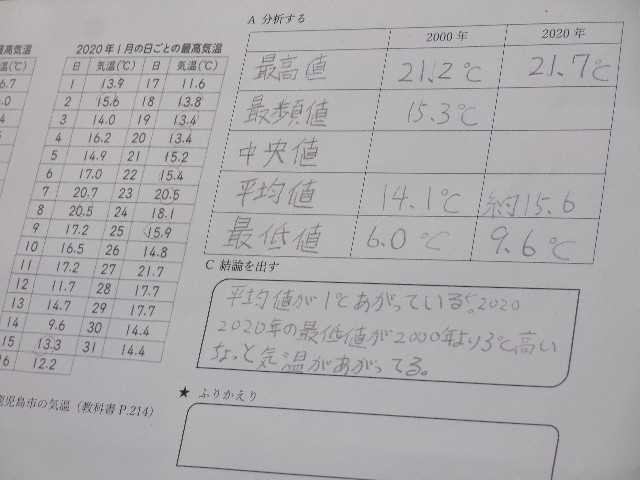 最高気温
2020年1月の日ごとの最高気温
温(℃)
日 気温(℃) 日 気温(℃)
1 13.9 17 11.6
2 15.6 18 13.8
3 14.0 19 13.4
4 16.2 20 13.4
5 14.9 21 15.2
6 17.0 22 15.4
7 20.7 23 20.5
8 20.5 24 18.1
9 17.2 25 15.9
10 16.5 26 14.8
11 17.2 27 21.7
12 11.7 28 17.7
13 14.7 29 17.7
14 9.6 30 14.4
15 13.3 31 14.4
16 12.2
鹿児島市の気温（教科書 P.214）
A 分析する
2000年 2020年
最高値 21.2℃ 21.7℃
最頻値 15.3℃
中央値
平均値 14.1℃ 約15.6
最低値 6.0℃ 9.6℃
C 結論を出す
平均値が1℃あがっている。2020
2020年の最低値が2000年より3℃高い
ちょっと気温があがってる。
★ ふりかえり